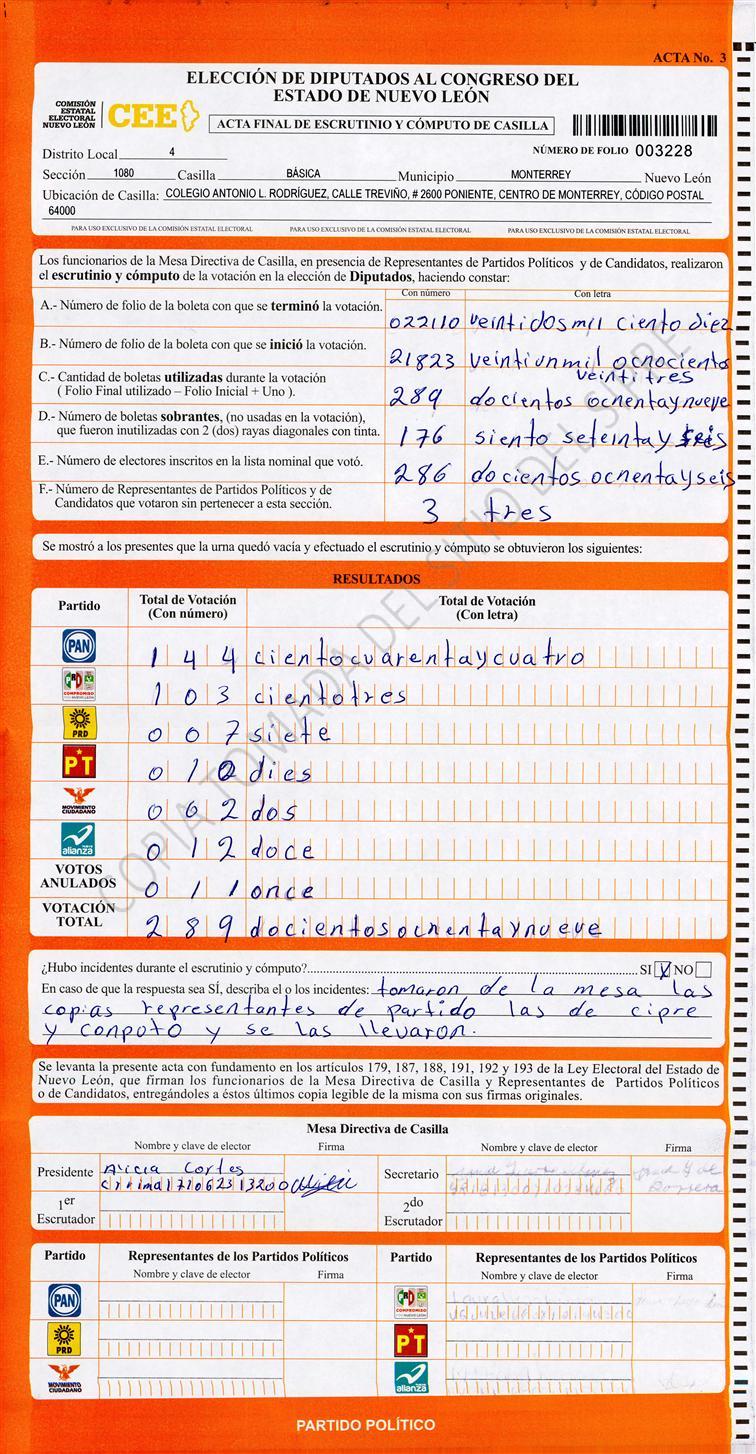 ACTA No. 3
ELECCIÓN DE DIPUTADOS AL CONGRESO DEL
ESTADO DE NUEVO LEÓN
COMISIÓN
ESTATAL
ELECTORAL
NUEVO LEÓN
CEE
ACTA FINAL DE ESCRUTINIO Y CÓMPUTO DE CASILLA
Distrito Local 4 NÚMERO DE FOLIO 003228
Sección 1080 Casilla BÁSICA Municipio MONTERREY Nuevo León
Ubicación de Casilla: COLEGIO ANTONIO L. RODRÍGUEZ, CALLE TREVIÑO, # 2600 PONIENTE, CENTRO DE MONTERREY, CÓDIGO POSTAL
64000
PARA USO EXCLUSIVO DE LA COMISIÓN ESTATAL ELECTORAL PARA USO EXCLUSIVO DE LA COMISIÓN ESTATAL ELECTORAL PARA USO EXCLUSIVO DE LA COMISIÓN ESTATAL ELECTORAL
Los funcionarios de la Mesa Directiva de Casilla, en presencia de Representantes de Partidos Políticos y de Candidatos, realizaron
el escrutinio y cómputo de la votación en la elección de Diputados, haciendo constar:
Con número Con letra
A.- Número de folio de la boleta con que se terminó la votación. 022110 veintidos mil ciento diez
B.- Número de folio de la boleta con que se inició la votación. 21823 veintiun mil ocnociento
veintitres
C.- Cantidad de boletas utilizadas durante la votación
( Folio Final utilizado – Folio Inicial + Uno ). 289 docientos ocnentaynueve
D.- Número de boletas sobrantes, (no usadas en la votación),
que fueron inutilizadas con 2 (dos) rayas diagonales con tinta. 176 siento seteintay seis
E.- Número de electores inscritos en la lista nominal que votó. 286 docientos ocnentayseis
F.- Número de Representantes de Partidos Políticos y de
Candidatos que votaron sin pertenecer a esta sección. 3 tres
Se mostró a los presentes que la urna quedó vacía y efectuado el escrutinio y cómputo se obtuvieron los siguientes:
RESULTADOS
Partido Total de Votación (Con número) Total de Votación (Con letra)
PAN 144 cientocuarentaycuatro
PRI COMPROMISO 103 cientotres
PRD 007 siete
PT 010 dies
MOVIMIENTO CIUDADANO 002 dos
alianza 012 doce
VOTOS ANULADOS 011 once
VOTACIÓN TOTAL 289 docientosocnentaynueve
¿Hubo incidentes durante el escrutinio y cómputo? SI X NO
En caso de que la respuesta sea SÍ, describa el o los incidentes: tomaron de la mesa las
copias representantes de partido las de cipre
y conputo y se las llevaron.
Se levanta la presente acta con fundamento en los artículos 179, 187, 188, 191, 192 y 193 de la Ley Electoral del Estado de
Nuevo León, que firman los funcionarios de la Mesa Directiva de Casilla y Representantes de Partidos Políticos
o de Candidatos, entregándoles a éstos últimos copia legible de la misma con sus firmas originales.
Mesa Directiva de Casilla
Nombre y clave de elector Firma Nombre y clave de elector Firma
Presidente Alicia Cortes Secretario
1er Escrutador 2do Escrutador
Partido Representantes de los Partidos Políticos Partido Representantes de los Partidos Políticos
Nombre y clave de elector Firma Nombre y clave de elector Firma
PAN PRI COMPROMISO
PRD PT
MOVIMIENTO CIUDADANO alianza
PARTIDO POLÍTICO
COPIA TOMADA DEL SITIO DEL SIPRE